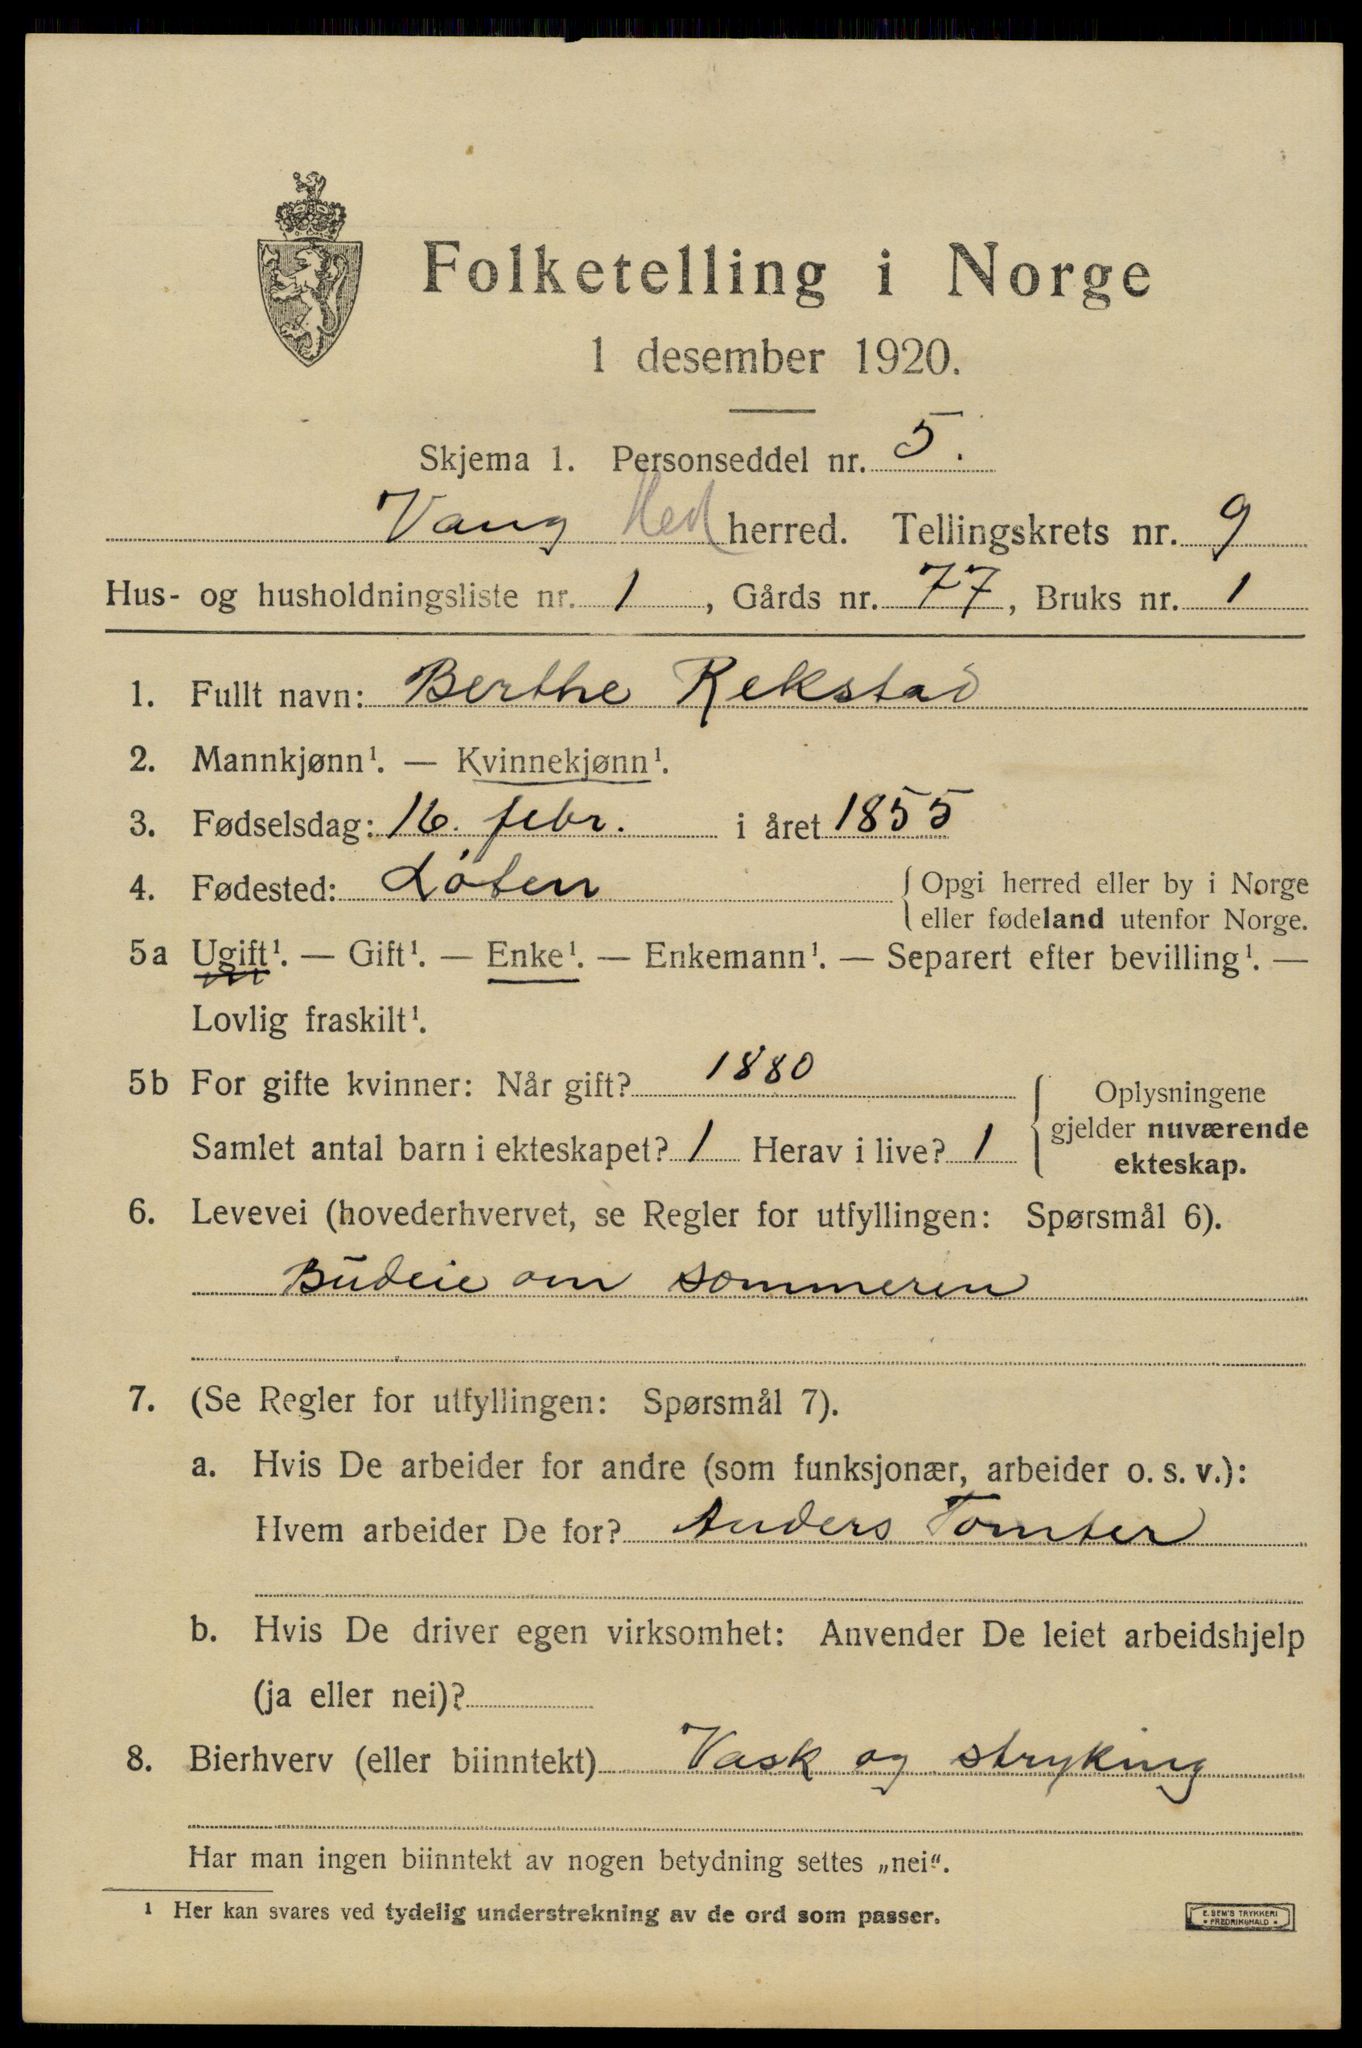 Folketelling i Norge
1 desember 1920.
Skjema 1. Personseddel nr. 5.
Vang Hed herred. Tellingskrets nr. 9
Hus- og husholdningsliste nr. 1, Gårds nr. 77, Bruks nr. 1
1. Fullt navn: Berthe Rekstad
2. Mannkjønn¹. — Kvinnekjønn¹.
3. Fødselsdag: 16. febr. i året 1855
4. Fødested: Löten {Opgi herred eller by i Norge
eller fødeland utenfor Norge.
5a Ugift¹. — Gift¹. — Enke¹. — Enkemann¹. — Separert efter bevilling¹. —
Lovlig fraskilt¹.
5b For gifte kvinner: Når gift? 1880
Samlet antal barn i ekteskapet? 1 Herav i live? 1
{Oplysningene
gjelder nuværende
ekteskap.
6. Levevei (hovederhvervet, se Regler for utfyllingen: Spørsmål 6).
Budeie om sommeren
7. (Se Regler for utfyllingen: Spørsmål 7).
a. Hvis De arbeider for andre (som funksjonær, arbeider o. s. v.):
Hvem arbeider De for? Anders Tomter
b. Hvis De driver egen virksomhet: Anvender De leiet arbeidshjelp
(ja eller nei)?
8. Bierhverv (eller biinntekt) Vask og stryking
Har man ingen biinntekt av nogen betydning settes „nei“.
¹ Her kan svares ved tydelig understrekning av de ord som passer.
E. SEM'S TRYKKERI
• FREDRIKSHALD •